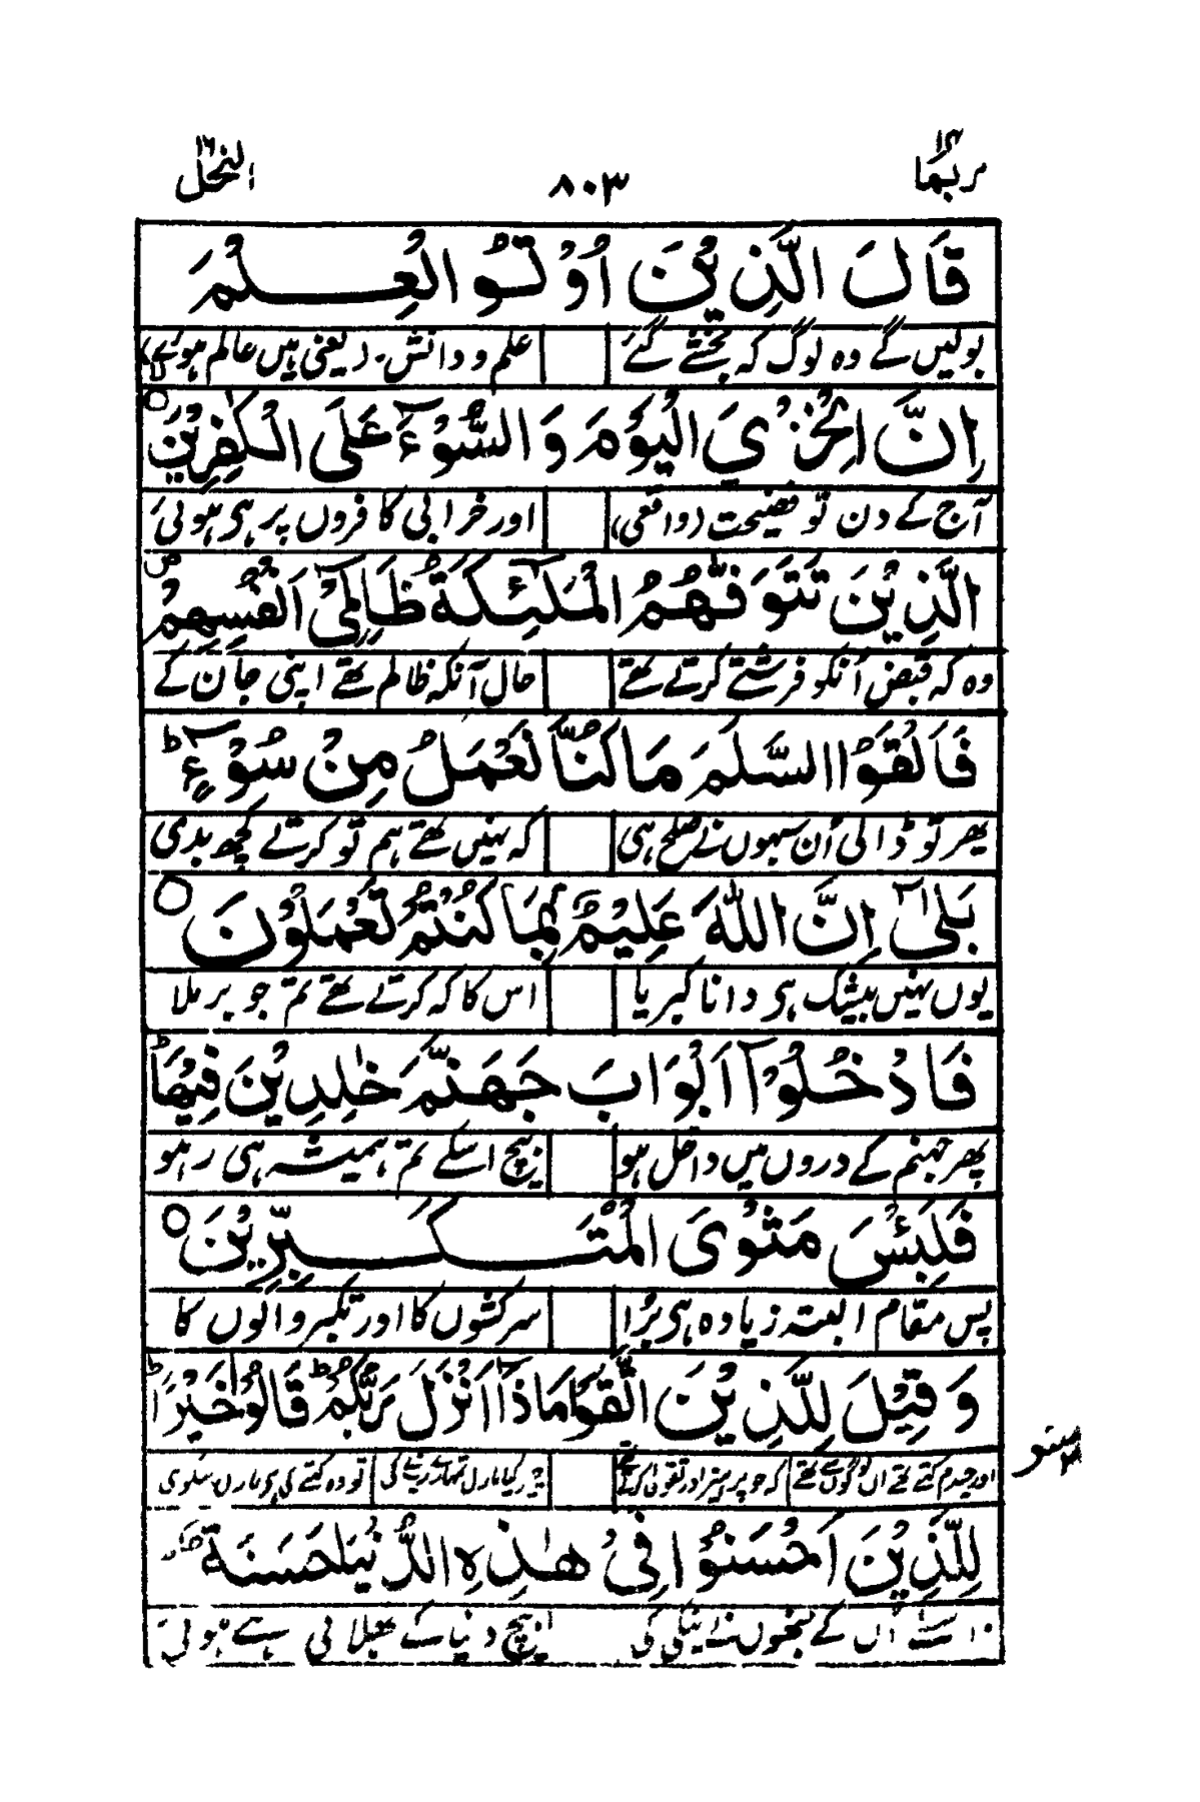 ربما ١٤
٨٠٣
النحل ١٦
قَالَ الَّذِيْنَ اُوْتُوا الْعِلْمَ
بولیں گے وہ لوگ کہ بخشے گئے علم و دانش۔ (یعنی ہیں عالم ہوئے)
اِنَّ الْخِزْيَ الْيَوْمَ وَالسُّوْٓءَ عَلَى الْكٰفِرِيْنَ ۙ○
آج کے دن تو فضیحت (واقعی) اور خرابی کافروں پر ہی ہوئی
الَّذِيْنَ تَتَوَفّٰىهُمُ الْمَلٰٓئِكَةُ ظَالِمِيْٓ اَنْفُسِهِمْ ۪
وہ کہ قبض اُنکو فرشتے کرتے تھے حال آنکہ ظالم تھے اپنی جان کے
فَاَلْقَوُا السَّلَمَ مَا كُنَّا نَعْمَلُ مِنْ سُوْٓءٍ ؕ
پھر تو ڈالی اُن سبھوں نے صلح ہی کہ نہیں تھے ہم تو کرتے کچھ بدی
بَلٰٓى اِنَّ اللّٰهَ عَلِيْمٌۢ بِمَا كُنْتُمْ تَعْمَلُوْنَ ○
یوں نہیں بیشک ہی دانا کبریا اس کا کہ کرتے تھے تم جو برملا
فَادْخُلُوْٓا اَبْوَابَ جَهَنَّمَ خٰلِدِيْنَ فِيْهَا ؕ
پھر جہنم کے دروں میں داخل ہو بیچ اسکے تم ہمیشہ ہی رہو
فَلَبِئْسَ مَثْوَى الْمُتَكَبِّرِيْنَ ○
پس مقام البتہ زیادہ ہی بُرا سرکشوں کا اور تکبر والوں کا
وَقِيْلَ لِلَّذِيْنَ اتَّقَوْا مَاذَآ اَنْزَلَ رَبُّكُمْ ؕ قَالُوْا خَيْرًا ؕ
اور جسدم کہتے تھے ان لوگوں سے تھے کہ جو پرہیز اور تقویٰ کرتے چیز کیا نازل تمہارے رب نے کی تو وہ کہتے
لِلَّذِيْنَ اَحْسَنُوْا فِيْ هٰذِهِ الدُّنْيَا حَسَنَةٌ ؕ
واسطے اُن کے جنھوں نے نیکی کی بیچ دنیا کے بھلائی ہے ہوئی